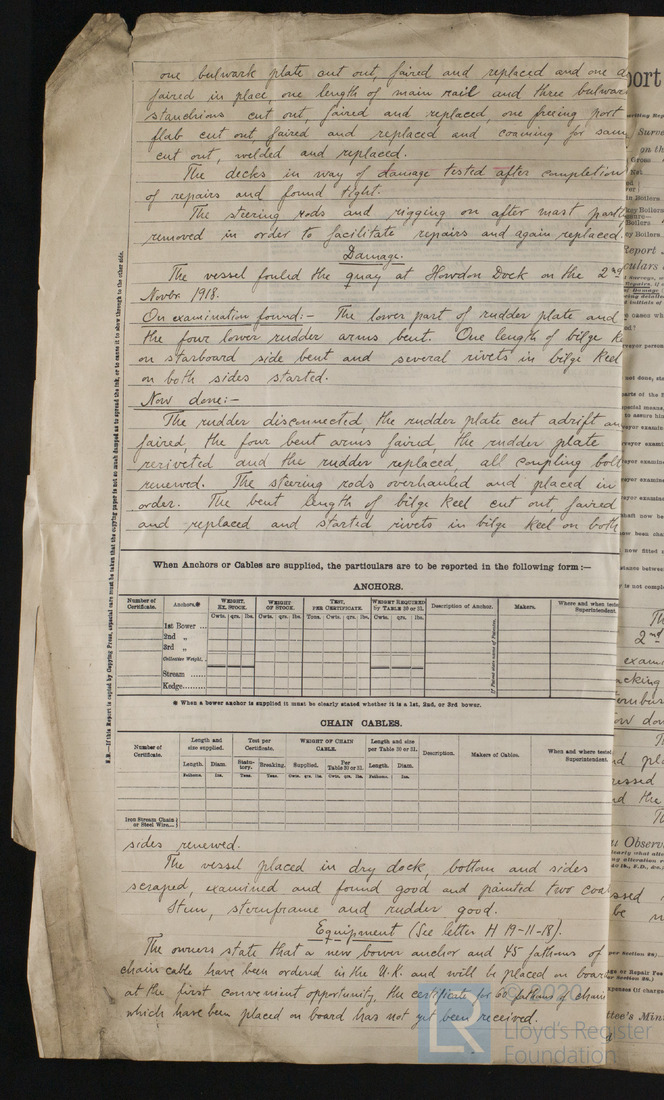 one bulwark plate cut out, faired and replaced and one
faired in place, one length of main rail and three bulwark
stanchions cut out, faired and replaced, one freeing port
flab cut out faired and replaced and coaming for same
cut out, welded and replaced.
The decks in way of damage tested after completion
of repairs and found tight.
The steering rods and rigging on after mast
removed in order to facilitate repairs and again replaced
Damage.
The vessel fouled the quay at Howdon Dock on the 2nd
Novbr. 1918.
On examination found:- The lower part of rudder plate and
the four lower rudder arms bent. One length of bilge
on starboard side bent and several rivets in bilge keel
on both sides started.
Now done:-
The rudder disconnected, the rudder plate cut adrift
faired, the four bent arms faired, the rudder plate
reriveted and the rudder replaced, all coupling
renewed. The steering rods overhauled and placed in
order. The bent length of bilge keel cut out, faired
and replaced and started rivets in bilge keel on both
When Anchors or Cables are supplied, the particulars are to be reported in the following form :—
ANCHORS.
Number of Certificate. Anchors.* WEIGHT, EX. STOCK. WEIGHT OF STOCK. TEST, PER CERTIFICATE. WEIGHT REQUIRED by TABLE 30 or 31. Description of Anchor. Makers. Where and when Superintendent.
Cwts. qrs. lbs. Cwts. qrs. lbs. Tons. Cwts. qrs. lbs. Cwts. qrs. lbs.
1st Bower ...
2nd „
3rd „
Collective Weight.
Stream ......
Kedge.......
* When a bower anchor is supplied it must be clearly stated whether it is a 1st, 2nd, or 3rd bower.
CHAIN CABLES.
Number of Certificate. Length and size supplied. Test per Certificate. WEIGHT OF CHAIN CABLE. Length and size per Table 30 or 31. Description. Makers of Cables. When and where tested Superintendent.
Length. Diam. Statutory. Breaking. Supplied. Per Table 30 or 31. Length. Diam.
Fathoms. Ins. Tons. Tons. Cwts. qrs. lbs. Cwts. qrs. lbs. Fathoms. Ins.
Iron Stream Chain or Steel Wire...
sides renewed.
The vessel placed in dry dock, bottom and sides
scraped, examined and found good and painted two
Stem, sternframe and rudder good.
Equipment (See letter H 19-11-18).
The owners state that a new bower anchor and 45 fathoms of
chain cable have been ordered in the U.K. and will be placed on board
at the first convenient opportunity, the certificate for 60 fathoms of chain
which have been placed on board has not yet been received.
N.B.—If this Report is copied by Copying Press, especial care must be taken that the copying paper is not so much damped as to spread the ink, or to cause it to show through to the other side.
© 2020
LR
Lloyd's Register
Foundation